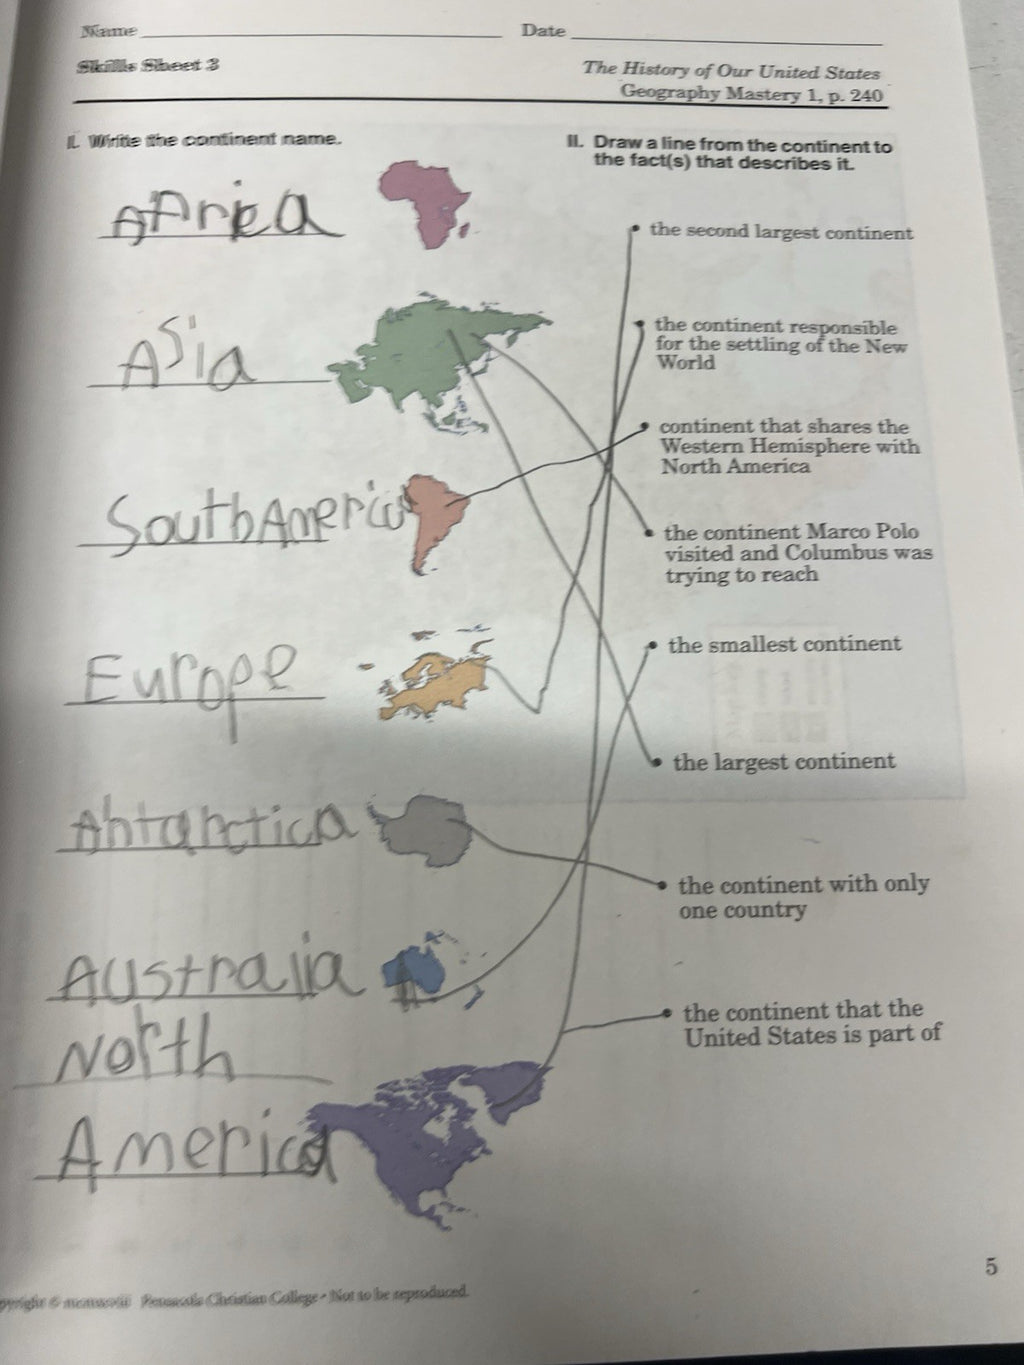 Name Date
Skills Sheet 3
The History of Our United States
Geography Mastery 1, p. 240
I. Write the continent name.
II. Draw a line from the continent to
the fact(s) that describes it.
Africa
the second largest continent
Asia
the continent responsible
for the settling of the New
World
continent that shares the
Western Hemisphere with
North America
South America
the continent Marco Polo
visited and Columbus was
trying to reach
Europe
the smallest continent
the largest continent
Antarctica
the continent with only
one country
Australia
the continent that the
United States is part of
North
America
5
Pensacola Christian College • Not to be reproduced.